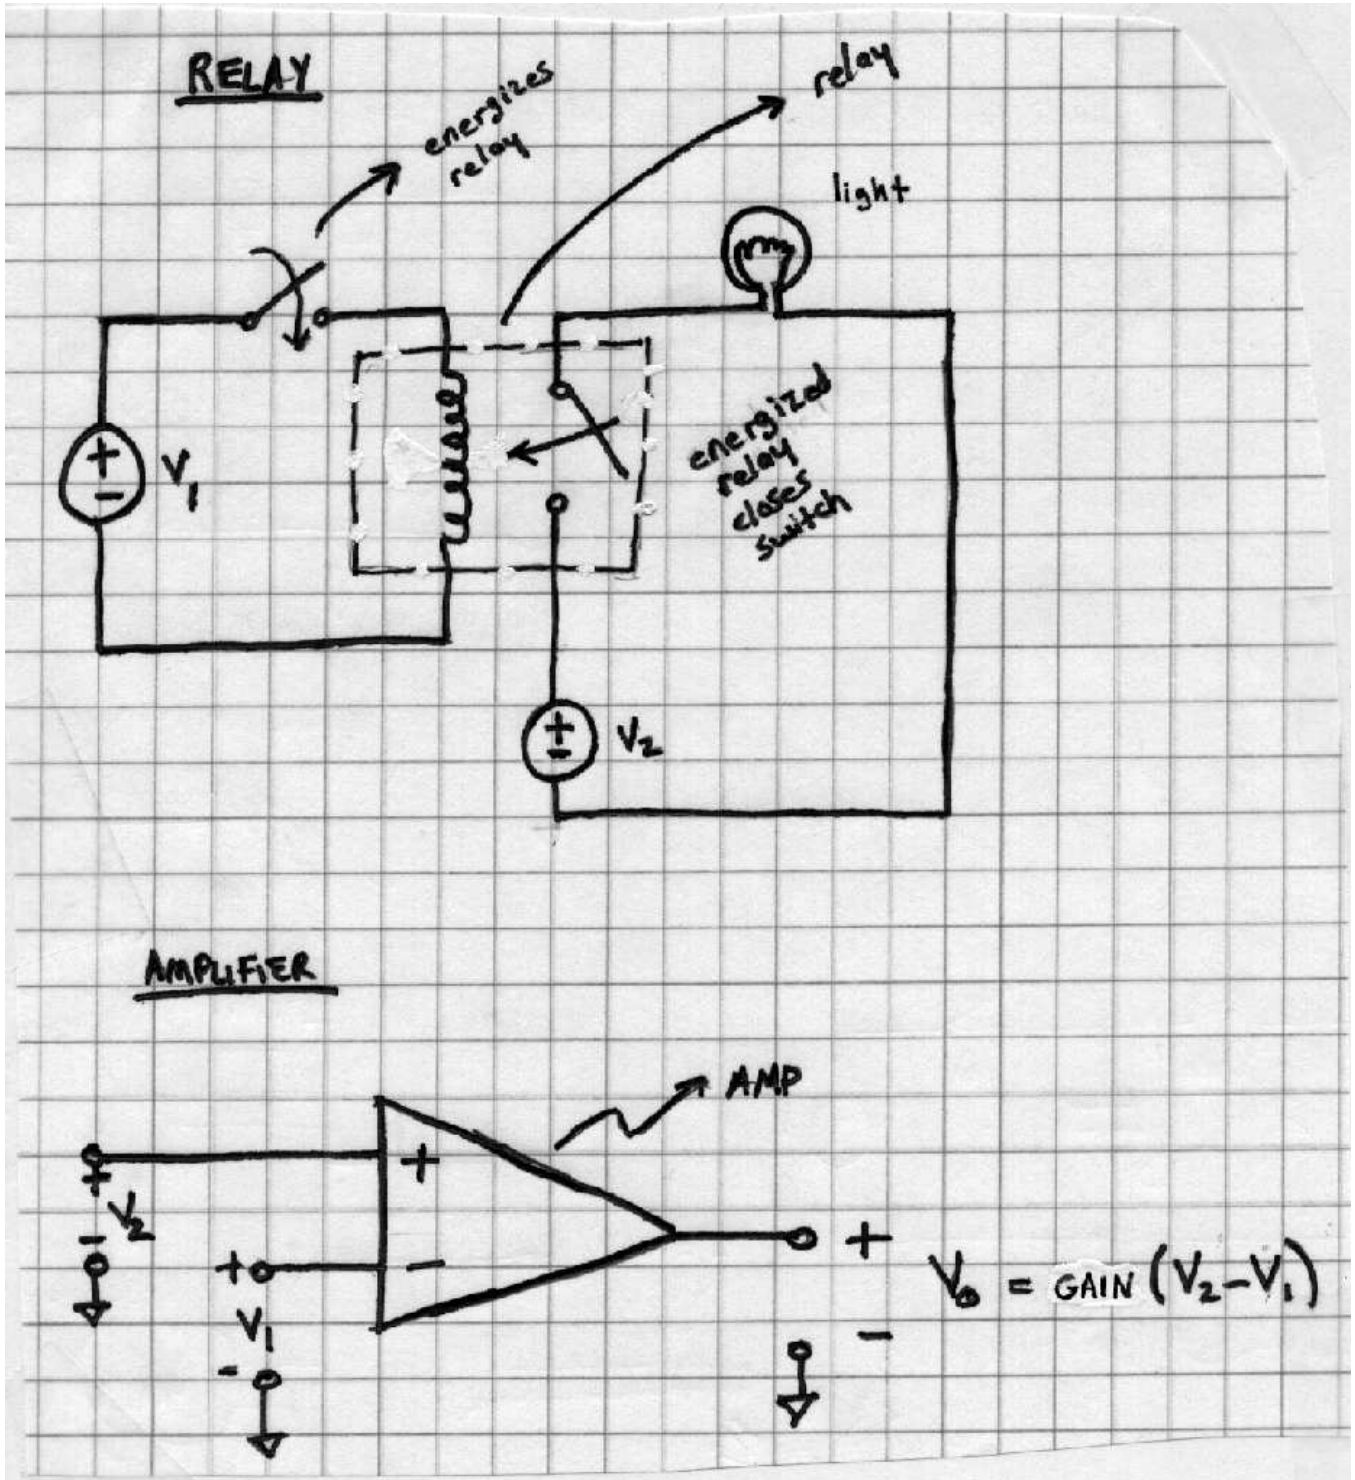 RELAY
energizes
relay
relay
light
+
-
V1
energized
relay
closes
switch
+
-
V2
AMPLIFIER
AMP
+
V2
-
+
V1
-
+
-
+
V0 = GAIN (V2-V1)
-